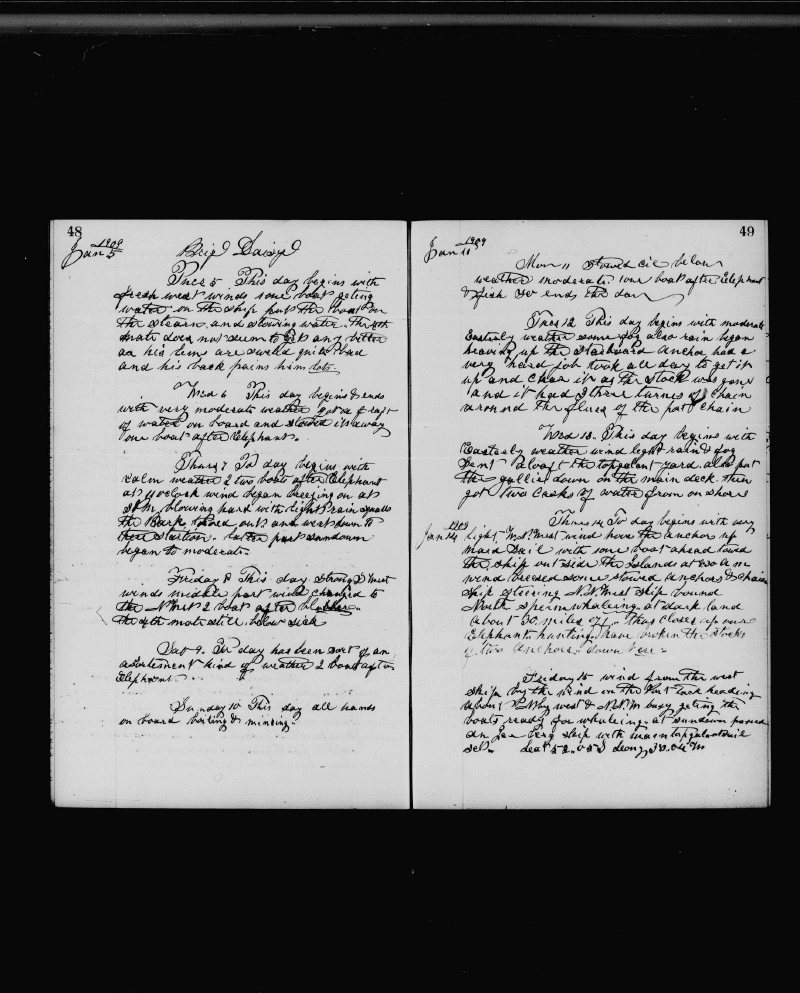 48
1909
Jan 5
Brig Daisy
Tues 5. This day begins with
fresh west winds some boats geting
water on the ship put the boat on
the stearn and stowing water. The 4th
mate does not seem to get any better
as his lims are sweld quite bad
and his back pains him lots.
Wed 6 This day begins & ends
with very moderate weather got a raft
of water on board and stowed it away
one boat after Elephant.
Thurs 7 To day begins with
calm weather 2 two boats after Elephant
at 11 oclock wind began breezing on at
P.M. blowing hard with light rain squals
the Bark towed out and went down to
there station. later part sundown
began to moderate.
Friday 8 This day strong S West
winds middle part wind changed to
the N West 2 boat after blubber.
the 4th mate still below sick
Sat 9. To day has been sort of an
asortement kind of weather 2 boat after
Elephant.
Sunday 10 This day all hands
on board boiling & mincing.
49
1909
Jan 11
Mon 11 stowed oil below
weather moderate. one boat after Elephant
& fish so ends the day
Tues 12 This day begins with moderate
Easterly weather some fog also rain began
heaving up the Starboard Anchor had a
very hard job took all day to get it
up and clear it as the stock was gone
and it had 3 three turnes of chain
around the flues of the port chain
Wed 13. This day begins with
Easterly weather wind light rain & fog
Sent aloft the topgalant yard also put
the gallied down on the main deck then
got two casks of water from on shore
1909
Jan 14
Thurs 14 To day begins with very
light N.W. West wind hove the anchor up
maid Sail with one boat ahead towed
the ship out side the Islands at 8.30 a m
wind breesed some stowed anchors & chain
ship steering N.N. West ship bound
North spermwhaleing at dark land
about 30 miles off. thus closes up our
Elephant hunting. have broken the stocks
of two Anchors down here.
Friday 15 wind from the west
ship by the wind on the Port tack heading
about N by west & N.N.W busy geting the
boats ready for whaleing. at sundown passed
an Ice Berg ship with main topgalantsail
set. Lat 52.05 S Long 38.04 W